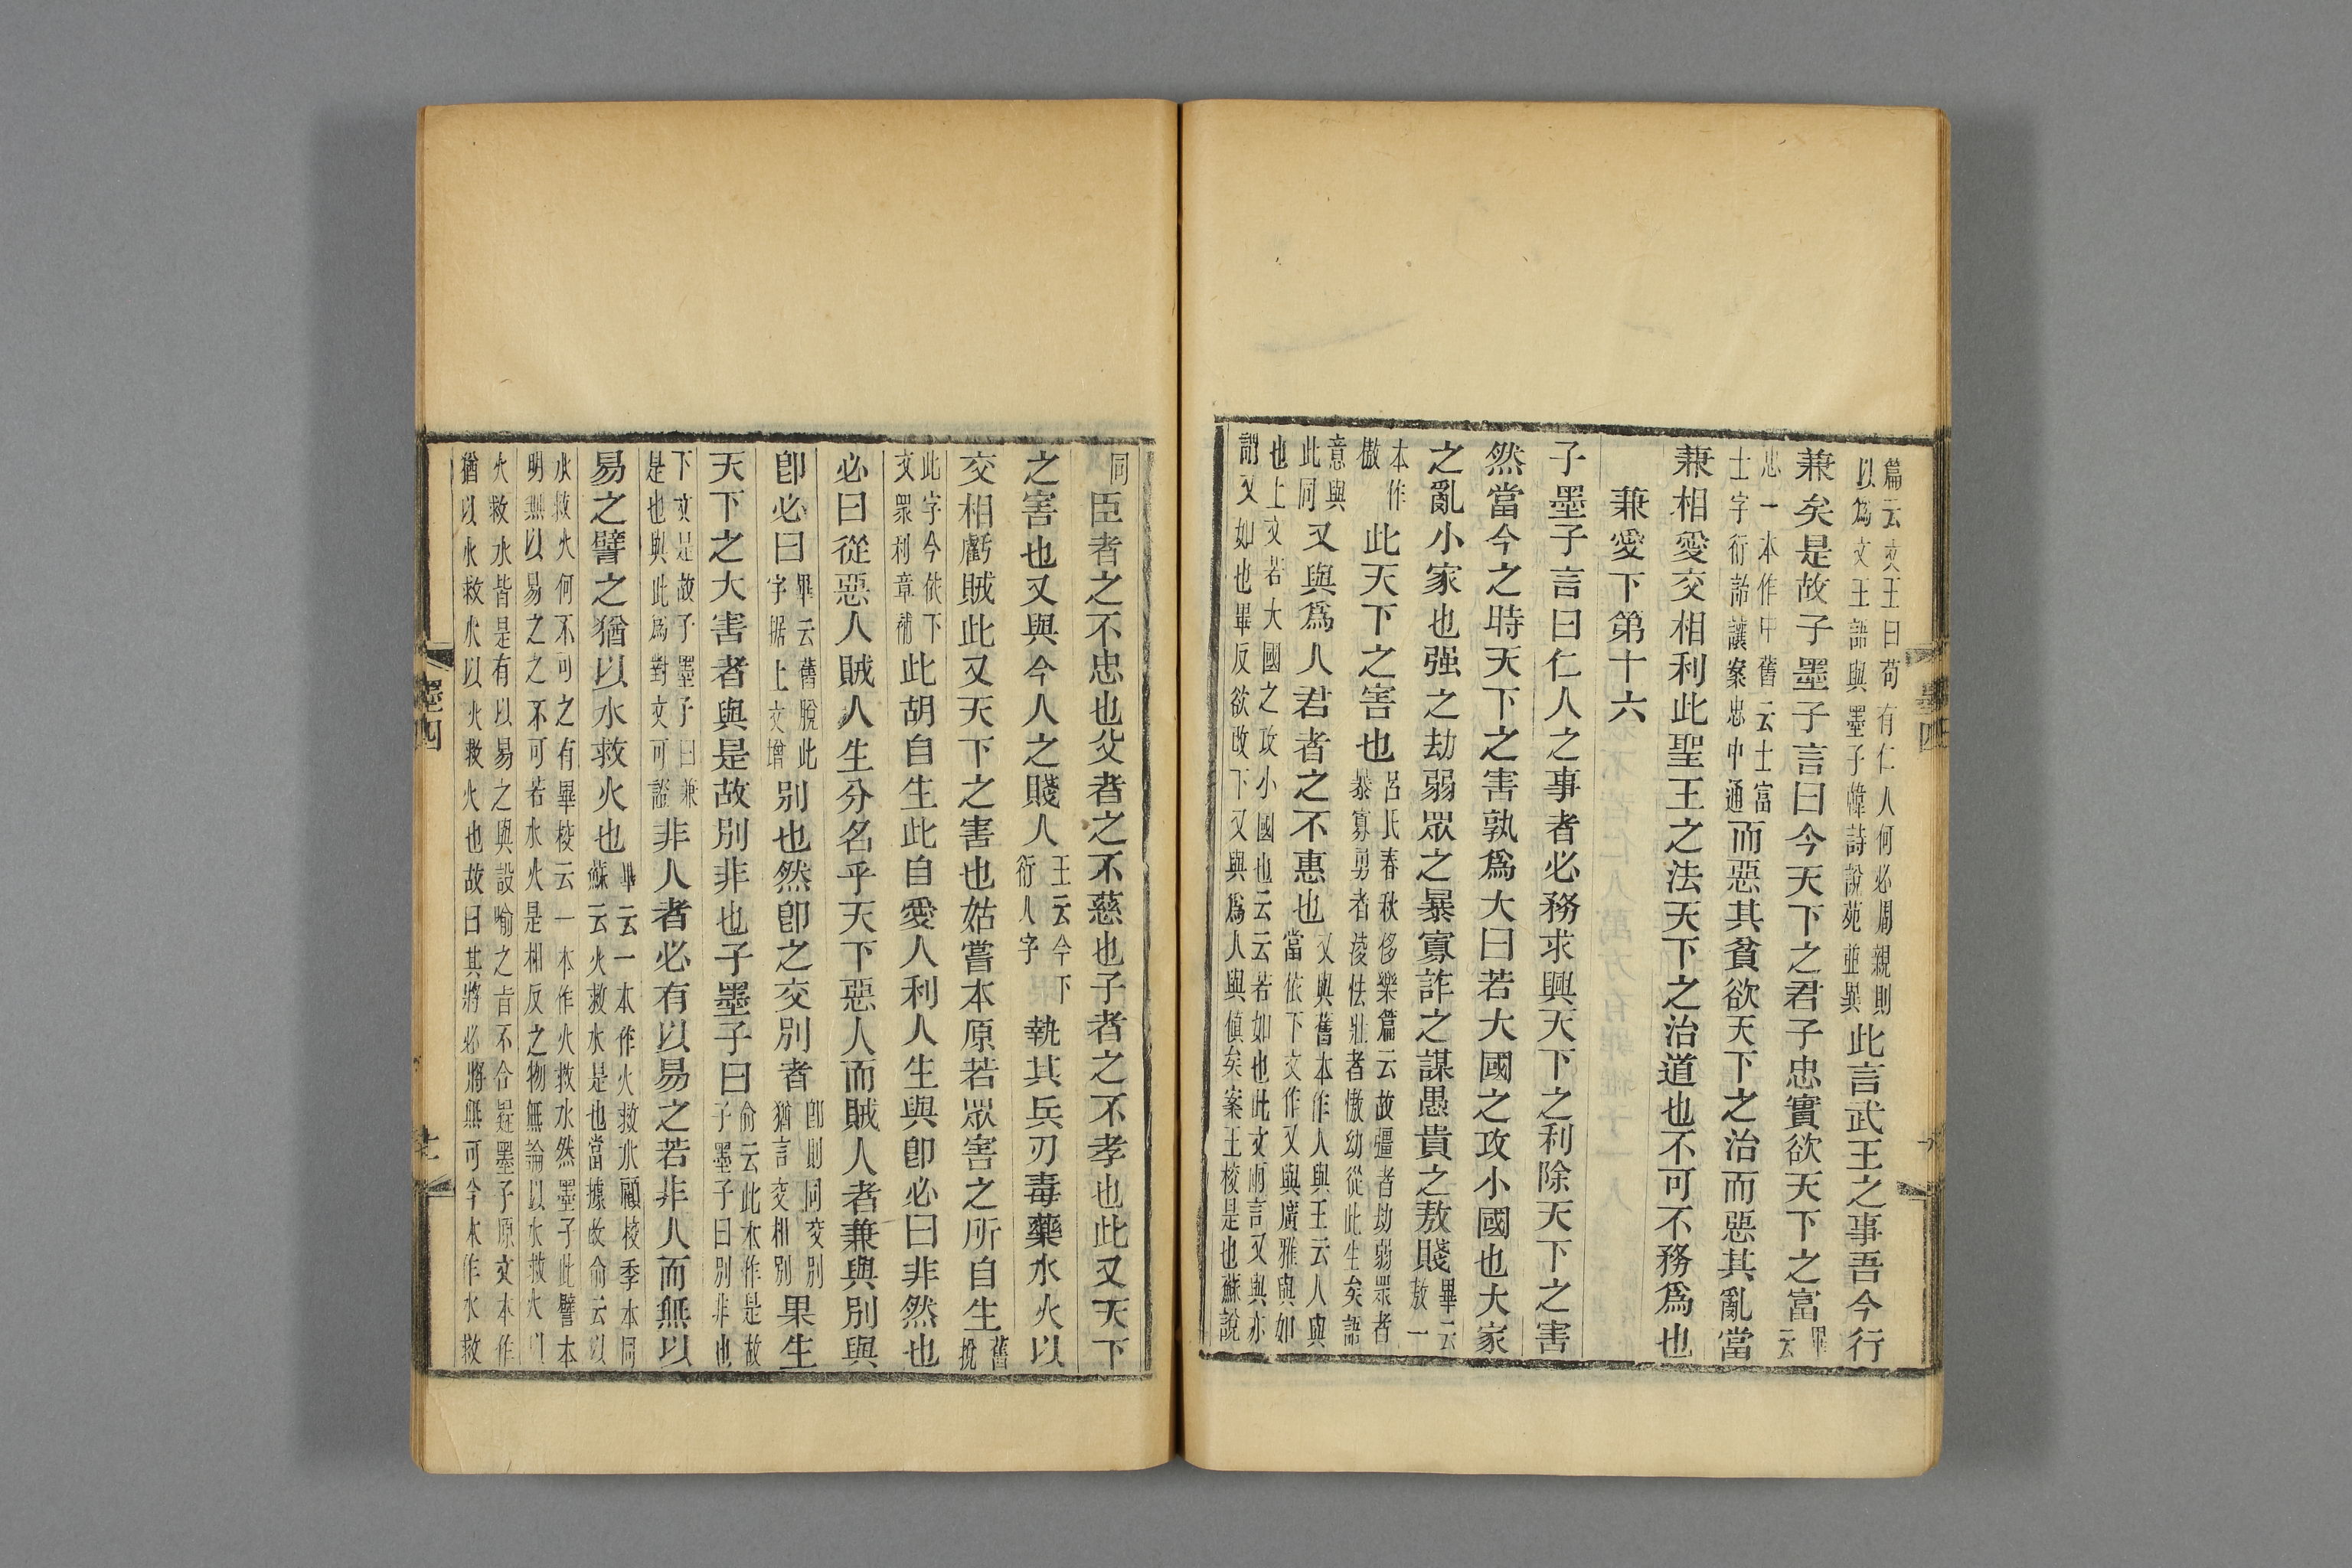 篇云文王曰苟有仁人何必周親則
以爲文王語與墨子韓詩說苑並異此言武王之事吾今行
兼矣是故子墨子言曰今天下之君子忠實欲天下之富畢云
忠一本作中舊云士富
士字衍詒讓案忠中通而惡其貧欲天下之治而惡其亂當
兼相愛交相利此聖王之法天下之治道也不可不務爲也
兼愛下第十六
子墨子言曰仁人之事者必務求興天下之利除天下之害
然當今之時天下之害孰爲大曰若大國之攻小國也大家
之亂小家也强之劫弱眾之暴寡詐之謀愚貴之敖賤畢云敖一
本作傲此天下之害也呂氏春秋侈樂篇云故彊者劫弱眾者
暴寡勇者淩怯壯者慠幼從此生矣語
意與此同又與爲人君者之不惠也又與舊本作人與王云人與
當依下文作又與廣雅與如
也上文若大國之攻小國也云云若如也此文兩言又與亦
謂又如也畢反欲改下又與爲人與傎矣案王校是也蘇說
同臣者之不忠也父者之不慈也子者之不孝也此又天下
之害也又與今人之賤人王云今下衍人字執其兵刃毒藥水火以
交相虧賊此又天下之害也姑嘗本原若眾害之所自生舊捝
此字今依下文眾利章補此胡自生此自愛人利人生與卽必曰非然也
必曰從惡人賊人生分名乎天下惡人而賊人者兼與別與
卽必曰畢云舊脫此字据上文增別也然卽之交別者卽則同交別猶言交相別果生
天下之大害者與是故別非也子墨子曰俞云此本作是故子墨子曰別非也
下文是故子墨子曰兼是也與此爲對文可證非人者必有以易之若非人而無以
易之譬之猶以水救火也畢云一本作火救水顧校季本同
蘇云火救水是也當據改俞云以
水救火何不可之有畢校云一本作火救水然墨子此譬本
明無以易之之不可若水火是相反之物無論以水救火以
火救水皆是有以易之與設喻之旨不合疑墨子原文本作
猶以水救水以火救火也故曰其將必將無可今本作水救
墨四
墨四